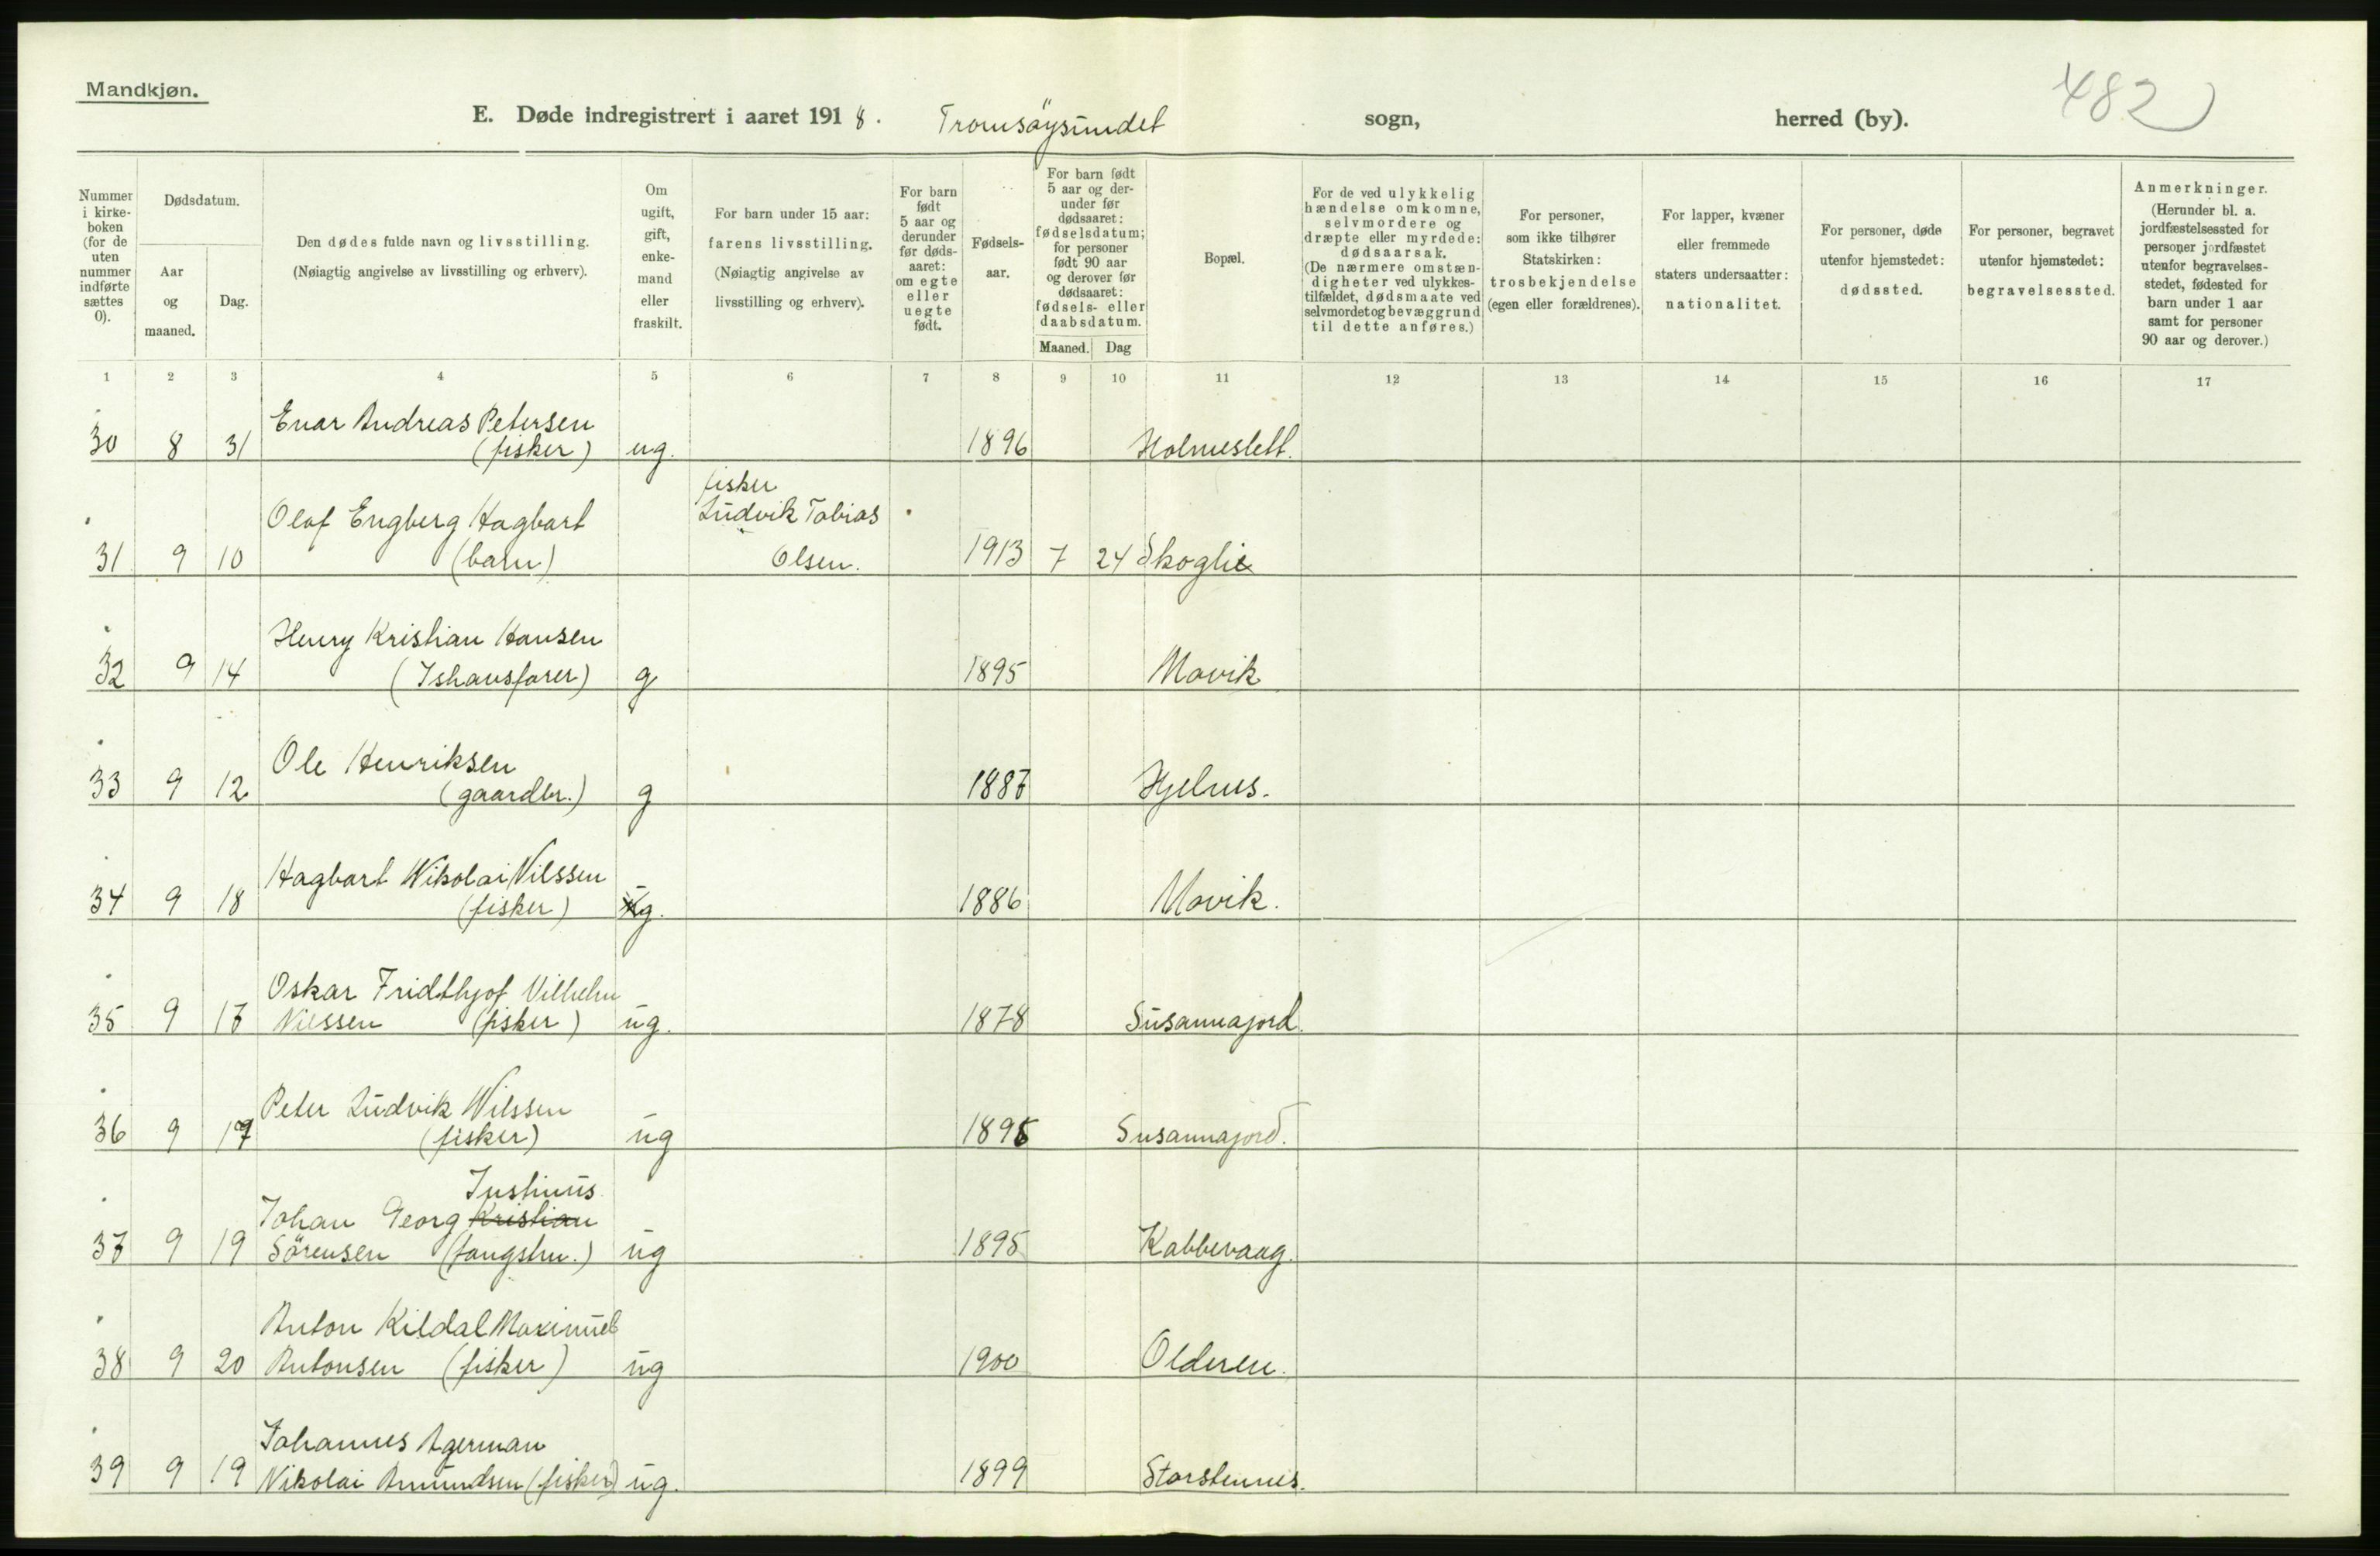 Mandkjøn.
482
E. Døde indregistrert i aaret 1918. Tromsöysundet sogn, herred (by).
Nummer i kirkeboken (for de uten nummer indførte sættes 0).
Dødsdatum.
Aar og maaned.
Dag.
Den dødes fulde navn og livsstilling.
(Nøiagtig angivelse av livsstilling og erhverv).
Om ugift, gift, enkemand eller fraskilt.
For barn under 15 aar: farens livsstilling.
(Nøiagtig angivelse av livsstilling og erhverv).
For barn født 5 aar og derunder før dødsaaret: om egte eller uegte født.
Fødselsaar.
For barn født 5 aar og derunder før dødsaaret: fødselsdatum; for personer født 90 aar og derover før dødsaaret: fødsels- eller daabsdatum.
Maaned. Dag
Bopæl.
For de ved ulykkelig hændelse omkomne, selvmordere og dræpte eller myrdede: dødsaarsak.
(De nærmere omstændigheter ved ulykkestilfældet, dødsmaate ved selvmordet og bevæggrund til dette anføres.)
For personer, som ikke tilhører Statskirken: trosbekjendelse (egen eller forældrenes).
For lapper, kvæner eller fremmede staters undersaatter: nationalitet.
For personer, døde utenfor hjemstedet: dødssted.
For personer, begravet utenfor hjemstedet: begravelsessted.
Anmerkninger.
(Herunder bl. a. jordfæstelsessted for personer jordfæstet utenfor begravelsesstedet, fødested for barn under 1 aar samt for personer 90 aar og derover.)
1 2 3 4 5 6 7 8 9 10 11 12 13 14 15 16 17
Enar Andreas Petersen
30 8 31 (fisker) ug. 1896 Holmeslett.
fisker
Olaf Engberg Hagbart Ludvik Tobias
31 9 10 (barn) Olsen. 1913 7 24 Skoglie
Henry Kristian Hansen
32 9 14 (Ishavsfarer) g 1895 Mavik
Ole Henriksen
33 9 12 (gaardbr.) g 1887 Hjelnes.
Hagbart Nikolai Nilssen
34 9 18 (fisker) ug. 1886 Movik.
Oskar Fridthjof Vilhelm
35 9 17 Nilssen (fisker) ug. 1878 Susannajord.
Peter Ludvik Nilssen
36 9 17 (fisker) ug Susannajord.
Justinus
Johan Georg Kristian
37 9 19 Sörensen (fangstm.) ug 1895 Kabbevaag.
Anton Kildal
38 9 20 Antonsen (fisker) ug 1900 Olderen.
Johannes Agerman
39 9 19 Nikolai Amundsen (fisker) ug. 1899 Storstennes.